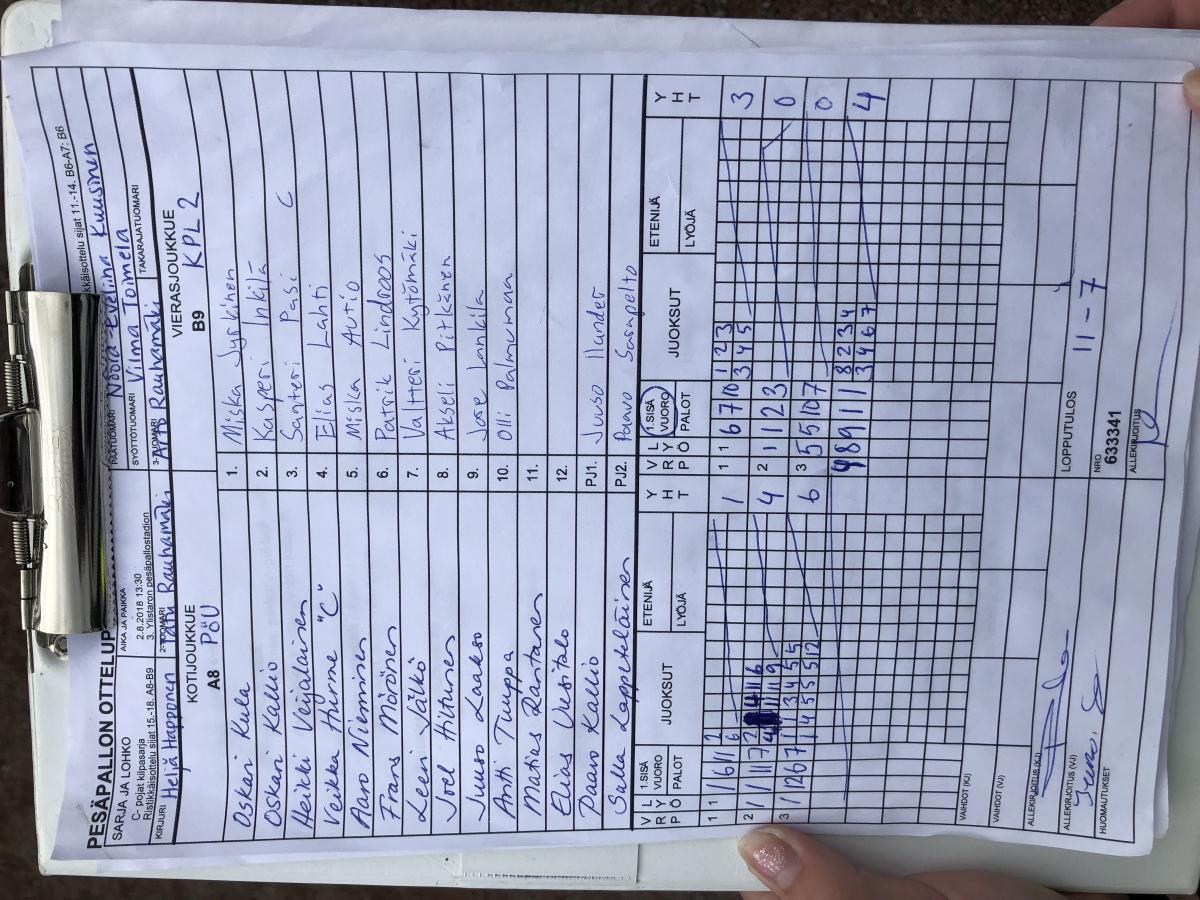 PESÄPALLON OTTELUP
SARJA JA LOHKO
C- pojat kilpasarja
Ristikkäisottelu sijat 15.-18. A8-B9
AIKA JA PAIKKA
2.8.2018 13:30
3. Ylistaron pesäpallostadion
kkäisottelu sijat 11.-14. B6-A7: B6
PÄÄTUOMARI Noora-Eveliina Kuusinen
SYÖTTÖTUOMARI Vilma Toimela
KIRJURI Heljä Happonen
2-TUOMARI Tatu Rauhamäki
3-TUOMARI Rauhamäki
TAKARAJATUOMARI
KOTIJOUKKUE
A8 PöU
VIERASJOUKKUE
B9 KPL 2
Oskari Kula 1. Miska Jyrkinen
Oskari Kallio 2. Kasperi Inkilä
Heikki Veijalainen 3. Santeri Pasi C
Veikka Hurme "C" 4. Elias Lahti
Aaro Nieminen 5. Miska Autio
Frans Mörönen 6. Patrik Lindroos
Leevi Jälkö 7. Valtteri Kytömäki
Joel Hiltunen 8. Akseli Pitkänen
Juuso Laakso 9. Lankila
Antti Tuuppa 10. Olli Palmumaa
Matias Rantanen 11.
Elias Uusitalo 12.
Paavo Kallio PJ1. Juuso Ilander
Salla Leppeläinen PJ2. Paavo Sarapelto
VRÖ LYP 1.SISÄ VUORO PALOT JUOKSUT ETENIJÄ LYÖJÄ YHT
VRÖ LYP 1.SISÄ VUORO PALOT JUOKSUT ETENIJÄ LYÖJÄ YHT
1 1 1 6 11 2 6 1
1 1 6 7 10 1 2 3 3 4 5 3
2 1 1 11 7 4
2 1 1 2 3 0
3 1 12 6 7 1 1 3 4 5 5 1 4 5 5 5 12 6
3 5 5 10 7 0
4 8 9 11 8 2 3 4 3 4 6 7 4
VAIHDOT (KJ)
VAIHDOT (VJ)
ALLEKIRJOITUS (KJ)
ALLEKIRJOITUS (VJ)
LOPPUTULOS 11 - 7
HUOMAUTUKSET
NRO
633341
ALLEKIRJOITUS